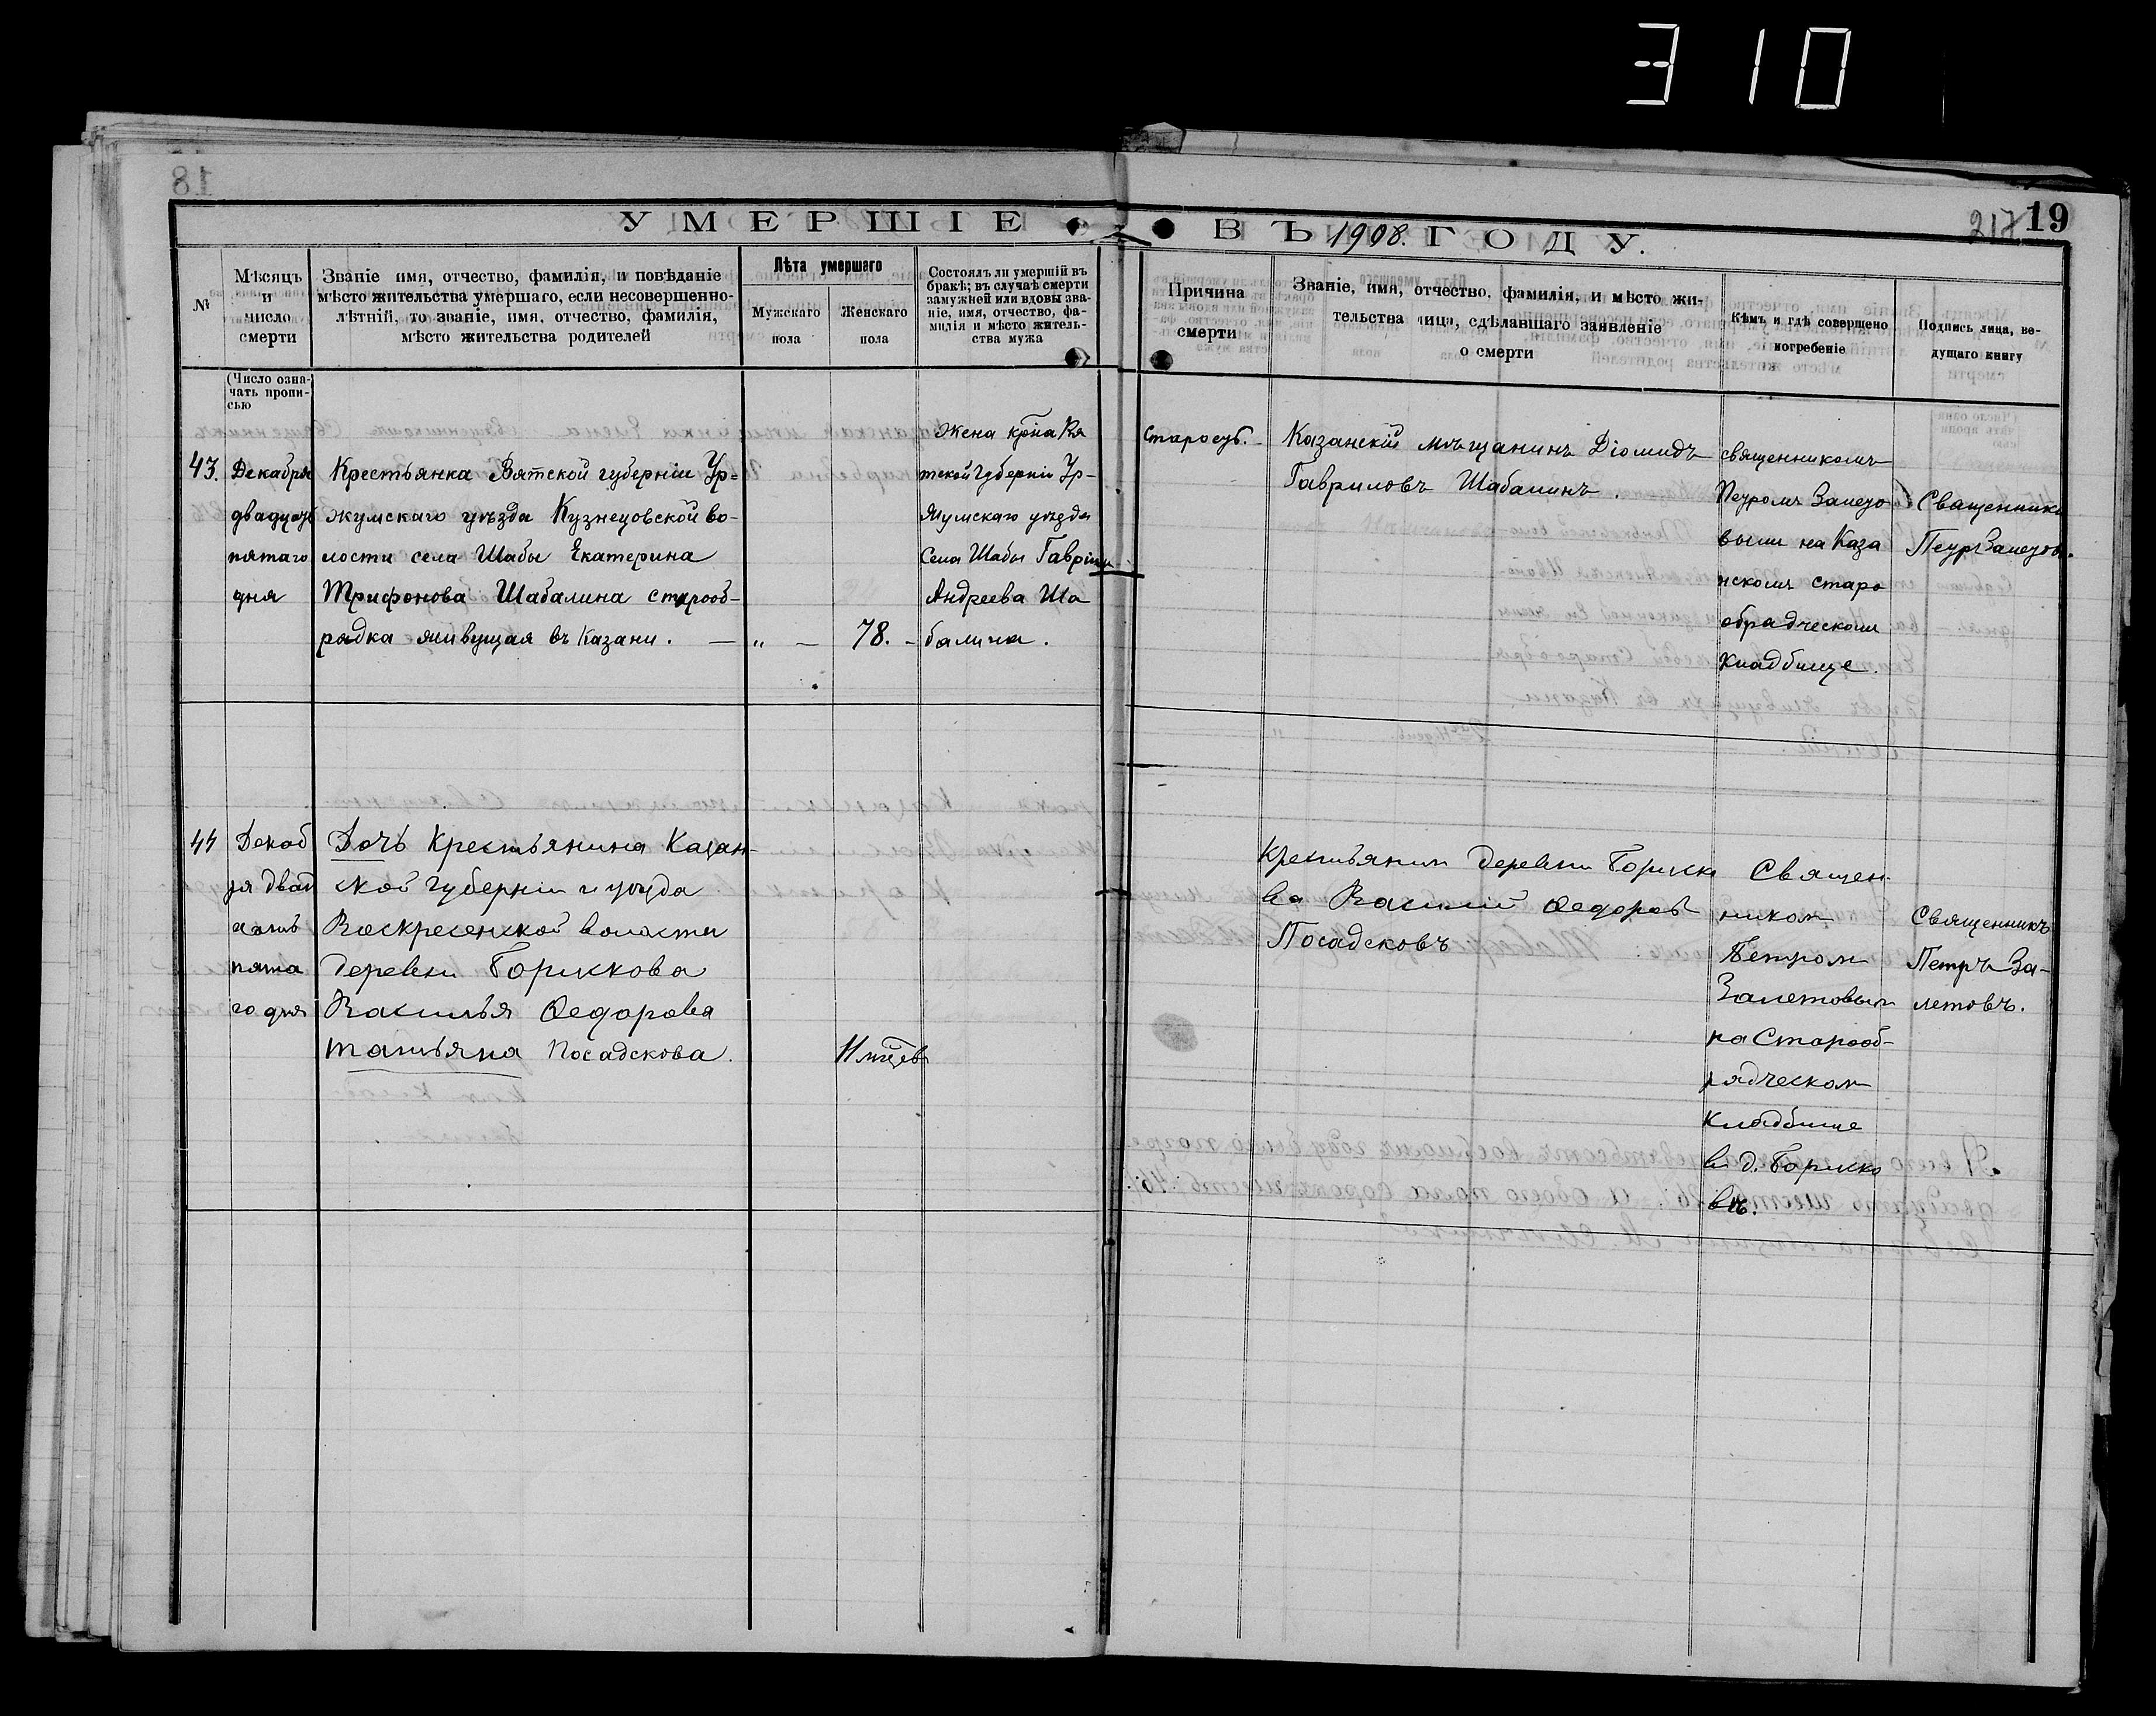 310
18
217 19
УМЕРШІЕ ВЪ 1908. ГОДУ.
№
Мѣсяцъ
и
число
смерти
Званіе имя, отчество, фамилія, и повѣданіе
мѣсто жительства умершаго, если несовершенно-
лѣтній, то званіе, имя, отчество, фамилія,
мѣсто жительства родителей
Лѣта умершаго
Мужскаго
пола
Женскаго
пола
Состоялъ ли умершій въ
бракѣ; въ случаѣ смерти
замужней или вдовы зва-
ніе, имя, отчество, фа-
милія и мѣсто житель-
ства мужа
Причина
смерти
Званіе, имя, отчество, фамилія, и мѣсто жи-
тельства лица, сдѣлавшаго заявленіе
о смерти
Кѣмъ и гдѣ совершено
погребеніе
Подпись лица, ве-
дущаго книгу
(Число озна-
чать пропи-
сью
43.
Декабря
двадцать
пятаго
дня
Крестьянка Вятской губерніи Ур-
жумскаго уѣзда Кузнецовской во-
лости села Шабы Екатерина
Трифонова Шабалина старооб-
радка живущая въ Казани. —
„ —
78. -
Жена крна Вя
тской Губерніи Ур-
жумскаго уѣзда
Села Шабы Гавріила
Андреева Ша
балина.
Старость. -
Казанскій мѣщанинъ Діомидъ
Гавриловъ Шабалинъ.
священникомъ
Петромъ Залето
вымъ на Каза
нскомъ старо
обрадческомъ
кладбище.
Священникъ
Петръ Залетовъ.
44
Декаб
ря двад
цать
пята
го дня
Дочь Крестьянина Казан-
ской губерніи и уѣзда
Воскресенской волости
деревни Борисково
Василья Федорова
Татьяна Посадскова.
11 мѣцевъ
Крестьянин деревни Бориско
ва Василій Федоров
Посадсковъ
Священ-
ником
Петром
Залетовым
на Старооб-
рядческом
кладбище
въ д. Бориско
вѣ.
Священникъ
Петръ За-
летовъ.